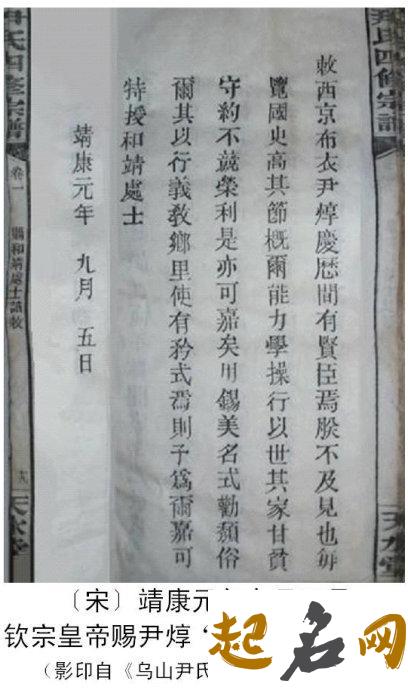 尹氏四修宗譜
天水堂
敕西京布衣尹焞慶歷間有賢臣焉朕不及見也每
覽國史高其節概爾能力學操行以世其家甘貧
守約不競榮利是亦可嘉矣用錫美名式勸頹俗
爾其以行義敎鄉里使有矜式焉則予爲爾嘉可
特授和靖處士
靖康元年 九月 五日
尹氏四修宗譜 卷一 賜和靖處士誥敕 十九 天水堂
〔宋〕靖康元
钦宗皇帝赐尹焞
（影印自《乌山尹氏
起名网